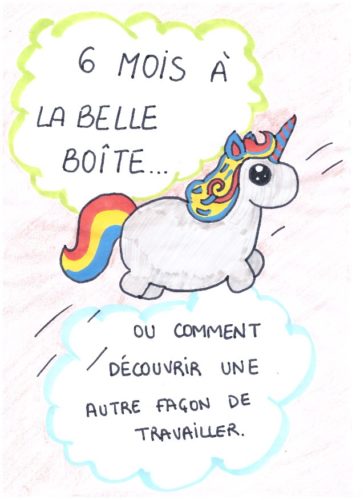 6 MOIS À
LA BELLE
BOÎTE...
OU COMMENT
DÉCOUVRIR UNE
AUTRE FAÇON DE
TRAVAILLER.